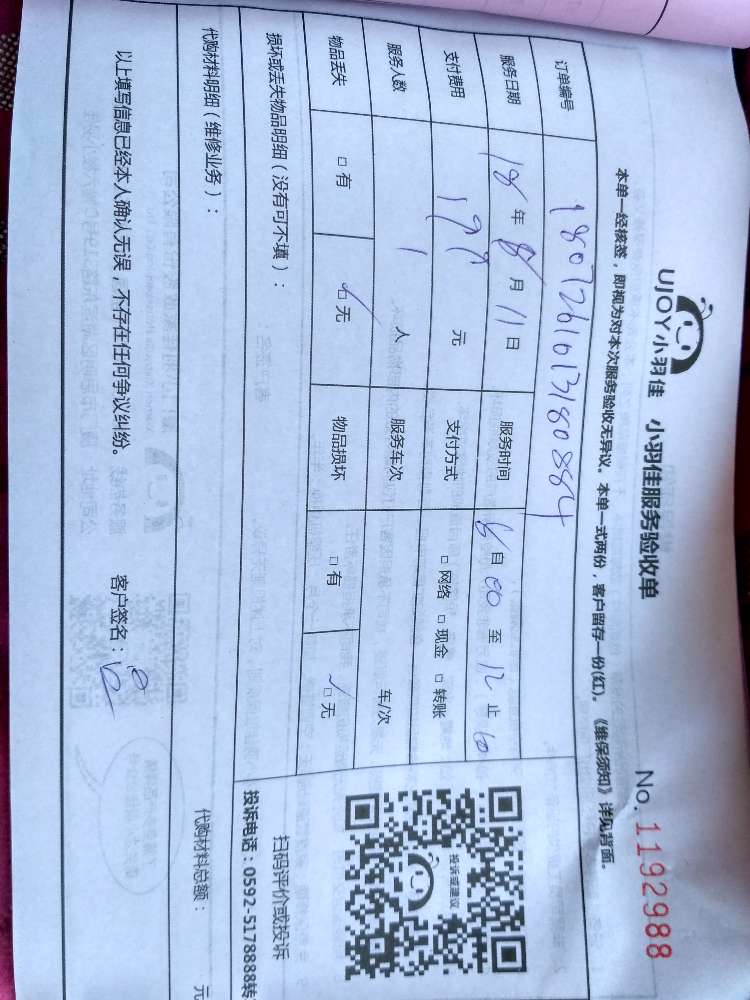 UJOY小羽佳 小羽佳服务验收单 No.1192988
本单一经核签，即视为对本次服务验收无异议。本单一式两份，客户留存一份(红)。《维保须知》详见背面。
订单编号 180726101318088​4
服务日期 18年8月11日 服务时间 8自00至12止
支付费用 元 支付方式 □网络 □现金 □转账
服务人数 1人 服务车次 车/次
物品丢失 □有 ✓□无 物品损坏 □有 ✓□无
损坏或丢失物品明细（没有可不填）：
投诉或建议
扫码评价或投诉
投诉电话：0592-5178888转
代购材料明细（维修业务）：
代购材料总额： 元
以上填写信息已经本人确认无误，不存在任何争议纠纷。 客户签名：